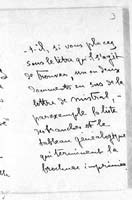 -t-il, si vous placez
sous la lettre qu'il s'agit
de trouver, un ou deux
documents en sus de la
lettre de Mistral, -
par exemple la liste
des branches et le
tableau généalogique
qui terminent la
brochure imprimée